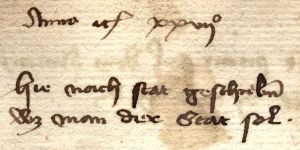 Anno etc xxviiº
Hie nach stat geschriben
Wz man der Stat sol.